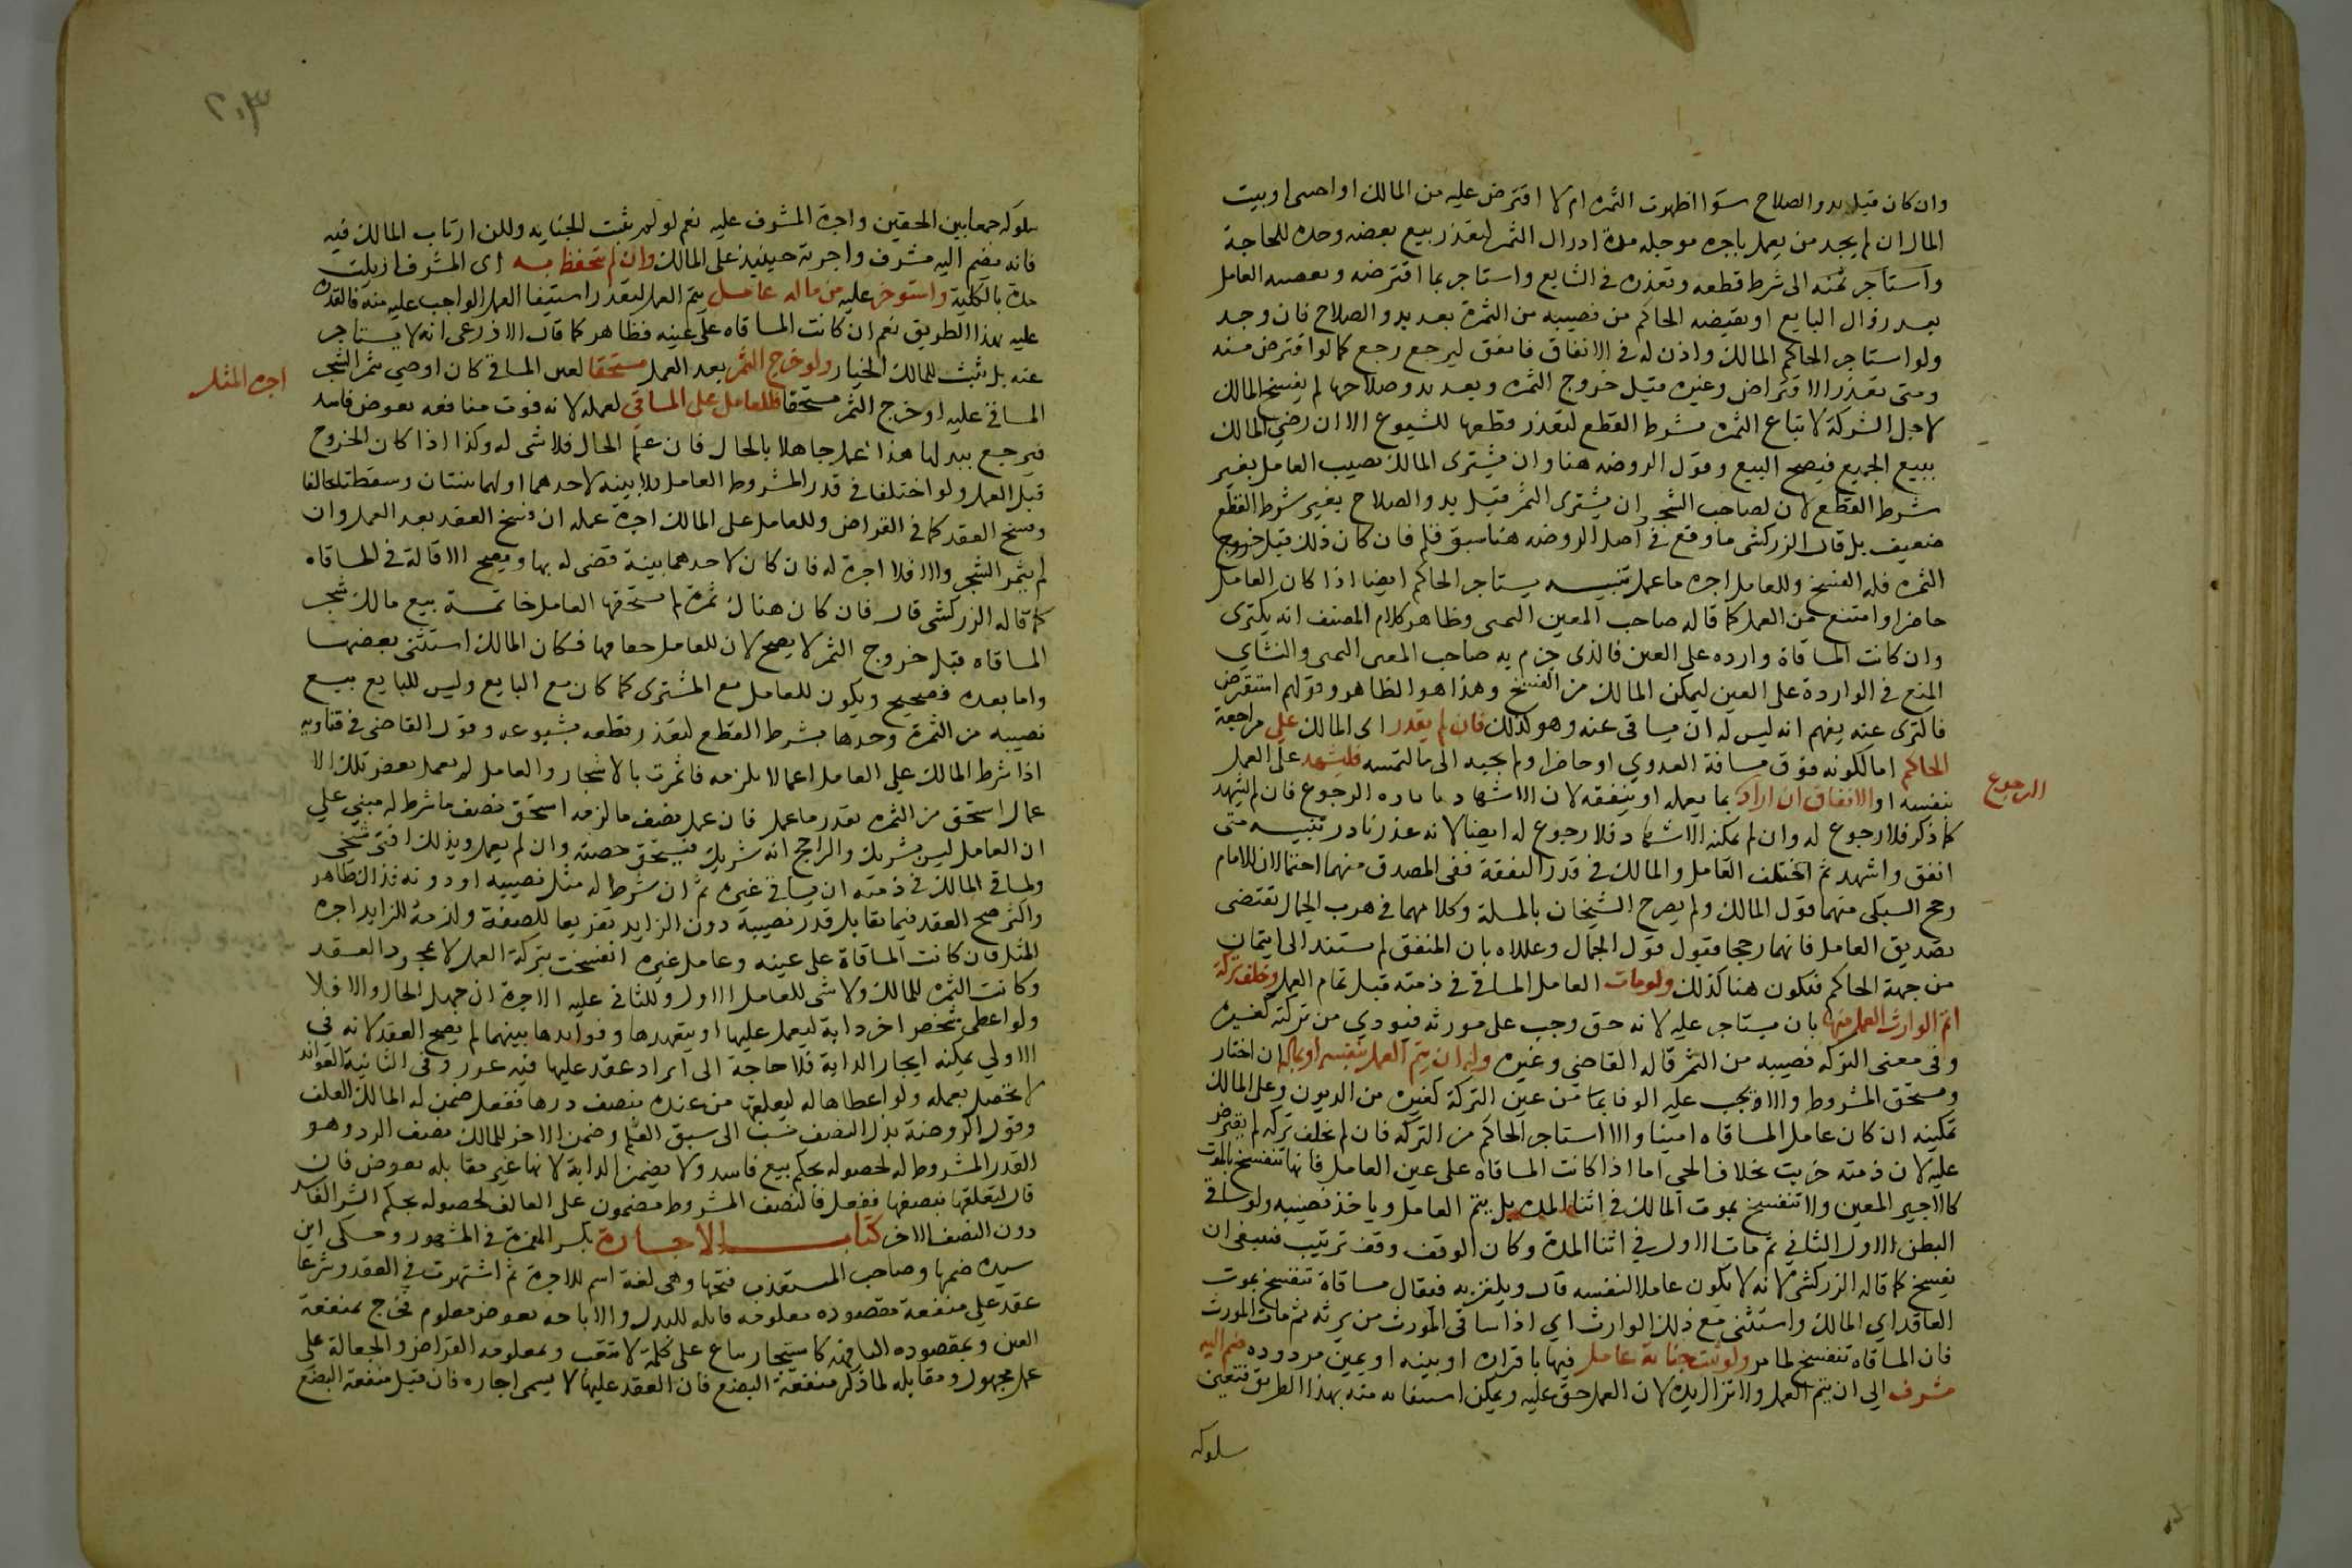 وان كان قبل بدو الصلاح سوا اظهرت الثمره ام لا اقترض عليه من المالك او اجنبي او بيت
المال ان لم يجد من يعمل باجره موجله مدة ادراك الثمر لتعذر بيع بعضه وحده للحاجة
واستاجر بثمنه الى شرط قطعه وتعذره في الشايع واستاجر بما اقترضه ويقضيه العامل
بعد زوال المانع او يقيضه الحاكم من نصيبه من الثمرة بعد بدو الصلاح فان وجد
ولو استاجر الحاكم المالك واذن له في الانفاق فانفق ليرجع رجع كما لو اقترض منه
ومتى تعذر الاقتراض وغيره قبل خروج الثمره وبعد بدو صلاحها لم يفسخ المالك
لاجل الشركة لا تباع الثمره بشرط القطع لتعذر قطعها للشيوع الا ان رضي المالك
ببيع الجميع فيصح البيع وقول الروضه هنا وان يشترى المالك نصيب العامل بغير
شرط القطع لان لصاحب الشجر ان يشترى الثمر قبل بدو الصلاح بغير شرط القطع
ضعيف بل قال الزركشي ما وقع في اصل الروضه هنا سبق قلم فان كان ذلك قبل خروج
الثمره فله الفسخ وللعامل اجره ما عمل تنبيه يستاجر الحاكم ايضا اذا كان العامل
حاضرا وامتنع من العمل كما قاله صاحب المعين اليمني وظاهر كلام المصنف انه يكترى
وان كانت المساقاة وارده على العين فالذى جزم به صاحب المعين اليمني والنشاي
المنع في الواردة على العين ليمكن المالك من الفسخ وهذا هو الظاهر وقولهم استقرض
فاكترى عنه يفهم انه ليس له ان يساقي عنه وهو كذلك فان لم يقدر اى المالك على مراجعة
الحاكم اما لكونه فوق مسافة العدوي او حاضرا ولم يجبه الى ما التمسه فليشهد على العمل
بنفسه او الانفاق ان اراد بما يعمله او ينفقه لان الاشهاد الرجوع فان لم يشهد
الرجوع
كما ذكر فلا رجوع له وان لم يمكنه الاشهاد فلا رجوع له ايضا لانه عذر نادر تنبيه متى
انفق واشهد ثم اختلف العامل والمالك في قدر النفقة ففي المصدق منهما احتمالان للامام
رجح السبكي منهما قول المالك ولم يصرح الشيخان بالمسلة وكلامهما في هرب الجمال يقتضى
تصديق العامل فانهما رجحا قبول قول الجمال وعللاه بان المنفق لم يستند الى ايتمان
من جهة الحاكم فيكون هنا كذلك ولو مات العامل المساقي في ذمته قبل تمام العمل وخلف تركة
اتم الوارث العمل منها بان يستاجر عليه لانه حق وجب على مورثه فيودي من تركته كغيره
وفي معنى التركه نصيبه من الثمر قاله القاضي وغيره وله ان يتم العمل بنفسه او بماله ان اختار
ويستحق المشروط والا ويجب عليه الوفا بما من عين التركة كغيره من الديون وعلى المالك
تمكينه ان كان عامل المساقاه امينا والا استاجر الحاكم من التركه فان لم يخلف تركه لم يقترض
عليه لان ذمته خربت بخلاف الحي اما اذا كانت المساقاه على عين العامل فانها تنفسخ بالموت
كالاجير المعين ولا تنفسخ بموت المالك في اثنا المده بل يتم العامل وياخذ نصيبه ولو ساقي
البطن الاول الثاني ثم مات الاول في اثنا المدة وكان الوقف وقف ترتيب فينبغي ان
يفسخ كما قاله الزركشي لانه لا يكون عاملا لنفسه قال ويلغز به فيقال مساقاة تنفسخ بموت
العاقد اي المالك واستثنى مع ذلك الوارث اي اذا ساقى المورث من يرثه ثم مات المورث
فان المساقاه تنفسخ لما مر ولو ثبتت خيانة عامل فيها باقراره او بينه او يمين مردوده ضم اليه
مشرف الي ان يتم العمل ولا تزال يده لان العمل حق عليه ويمكن استيفاوه منه بهذا الطريق فتعين
سلوكه
٢٠٣
سلوكه جمعا بين الحقين واجرة المشرف عليه نعم لو لم يثبت الخيانه ولكن ارتاب المالك فيه
فانه يضم اليه مشرف واجرته حينيذ على المالك وان لم يتحفظ به اى المشرف ازيلت
يده بالكلية واستوجر عليه من ماله عامل يتم العمل لتعذر استيفا العمل الواجب عليه منه فالقدرة
عليه بهذا الطريق نعم ان كانت المساقاه على عينه فظاهر كما قال الاذرعي انه لا يستاجر
عنه بل يثبت للمالك الخيار ولو خرج الثمر بعد العمل مستحقا لغير المساقي كان اوصي بثمر الشجر
اجره المثل
المساقي عليه او خرج الثمر مستحقا فللعامل على المساقي لعمله لانه فوت منافعه بعوض فاسد
فيرجع ببدلها هذا عمل جاهلا بالحال فان علم الحال فلا شى له وكذا اذا كان الخروج
قبل العمل ولو اختلفا في قدر المشروط للعامل ولا بينه لاحدهما او لهما بينتان وسقطتا تحالفا
وفسخ العقد كما في القراض وللعامل على المالك اجرة عمله ان فسخ العقد بعد العمل وان
لم يثمر الشجر والا فلا اجرة له فان كان لاحدهما بينة قضى له بها ويصح الاقالة في المساقاه
كما قاله الزركشي قال فان كان هناك ثمرة لم يستحقها العامل خاتمة بيع مالك شجر
المساقاه قبل خروج الثمر لا يصح لان للعامل حقا فيها فكان المالك استثنى بعضها
واما بعده فصحيح ويكون للعامل مع المشترى كما كان مع البايع وليس للبايع بيع
نصيبه من الثمرة وحدها بشرط القطع لتعذر قطعه بشيوعه وقول القاضي في فتاويه
اذا شرط المالك علي العامل اعمالا تلزمه فاثمرت بالاشجار والعامل لم يعمل بعض تلك الا
عمال استحق من الثمره بقدر ما عمل فان عمل نصف ما لزمه استحق نصف ما شرط له مبني على
ان العامل ليس بشريك والراجح انه شريك فيستحق حصته وان لم يعمل وبذلك افتى شيخي
ولمساقي المالك في ذمته ان يساقي غيره ثم ان شرط له مثل نصيبه او دونه فذاك ظاهر
واكثر صح العقد فيما يقابل قدر نصيبه دون الزايد تفريعا للصفقة ولزمه للزايد اجره
المثل فان كانت المساقاة على عينه وعامل غيره انفسخت بتركه العمل لا بمجرد العقد
وكانت الثمره للمالك ولا شى للعامل الاول وللثاني عليه الاجرة ان جهل الحال والا فلا
ولو اعطى شخص اخر دابة ليعمل عليها او يتعهدها وفوايدها بينهما لم يصح العقد لانه في
الاولي يمكنه ايجار الدابة فلا حاجة الى ايراد عقد عليها فيه غرر وفي الثانية الفوائد
لا تحصل بعمله ولو اعطاها له ليعلفها من عنده بنصف درها ففعل ضمن له المالك العلف
وقول الروضة بدل النصف نسب الى سبق القلم وضمن الاخر للمالك نصف الدر وهو
القدر المشروط له لحصوله بحكم بيع فاسد ولا يضمن الدابة لانها غير مقابله بعوض فان
قال لتعلفها بنصفها ففعل فالنصف المشروط مضمون على العالف لحصوله بحكم الشرا الفاسد
دون النصف الاخر كتاب الاجارة بكسر الهمزة في المشهور وحكى ابن
سيده ضمها وصاحب المستعذب فتحها وهي لغة اسم للاجرة ثم اشتهرت في العقد وشرعا
عقد علي منفعة مقصوده معلومه قابله للبدل والاباحه بعوض معلوم فخرج بمنفعة
العين وبمقصوده التافهه كاستيجار بياع على كلمة لا تتعب وبمعلومه القراض والجعالة على
عمل مجهول ومقابله لما ذكر منفعة البضع فان العقد عليها لا يسمى اجاره فان قيل منفعة البضع